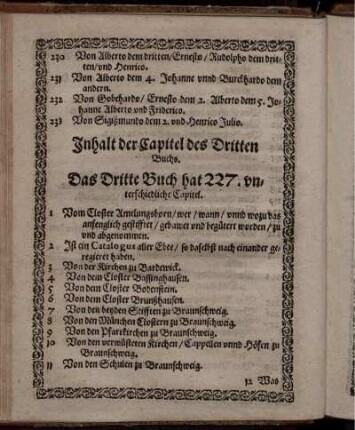 230 Von Alberto dem dritten/ Ernesto/ Rudolpho dem drit-
ten/ vnd Henrico.
231 Von Alberto dem 4. Johanne vnnd Burckhardo dem
andern.
232 Von Gobehardo/ Ernesto dem 2. Alberto dem 5. Jo-
hanne Alberto vnd Friderico.
233 Von Sigißmundo dem 2. vnd Henrico Julio.
Inhalt der Capitel des Dritten
Buchs.
Das Dritte Buch hat 227. vn-
terschiedliche Capitel.
1 Vom Closter Amelungsborn/ wer/ wann/ vnnd wozu das
anfenglich gestifftet/ gebawet vnd begütert worden/ zu
vnd abgenommen.
2 Ist ein Catalogus aller Ebte/ so daselbst nach einander ge-
regieret haben.
3 Von der Kirchen zu Bardewick.
4 Von dem Closter Boffinghausen.
5 Von dem Closter Bodenstein.
6 Von dem Closter Brunßhausen.
7 Von den beyden Stifften zu Braunschweig.
8 Von den München Clostern zu Braunschweig.
9 Von den Pfarrkirchen zu Braunschweig.
10 Von den verwüsteten Kirchen/ Cappellen vnnd Höfen zu
Braunschweig.
11 Von den Schulen zu Braunschweig.
12 Was